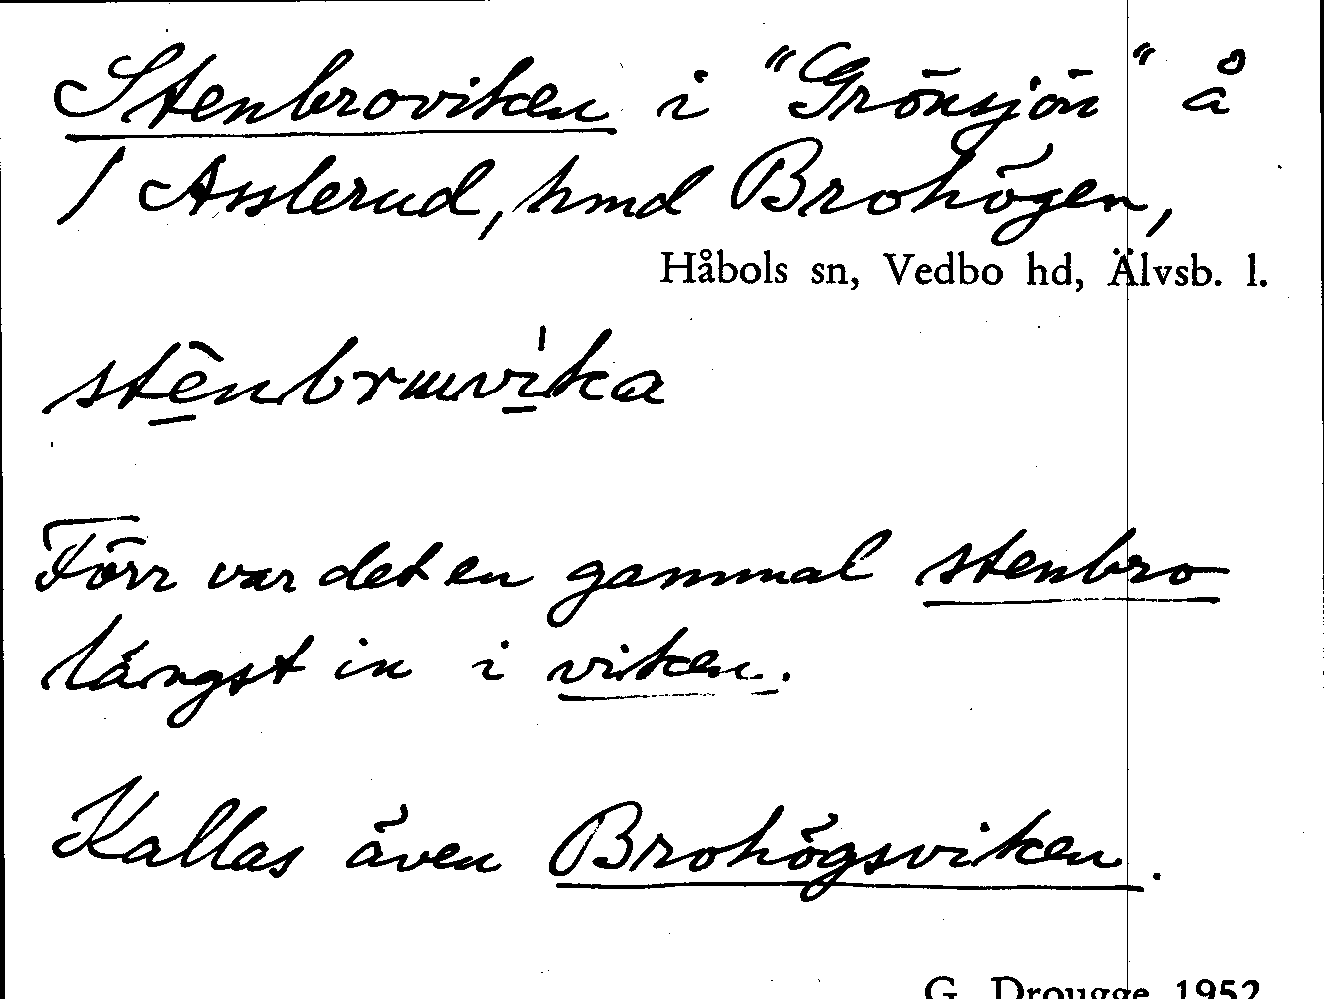 Stenbroviken i "Grönsjön" å
/ Asslerud, hmd Brohögen,
Håbols sn, Vedbo hd, Älvsb. l.
stènbrɯvi̍ka
Förr var det en gammal stenbro
längst in i viken.
Kallas även Brohögsviken.
G. Drougge 1952